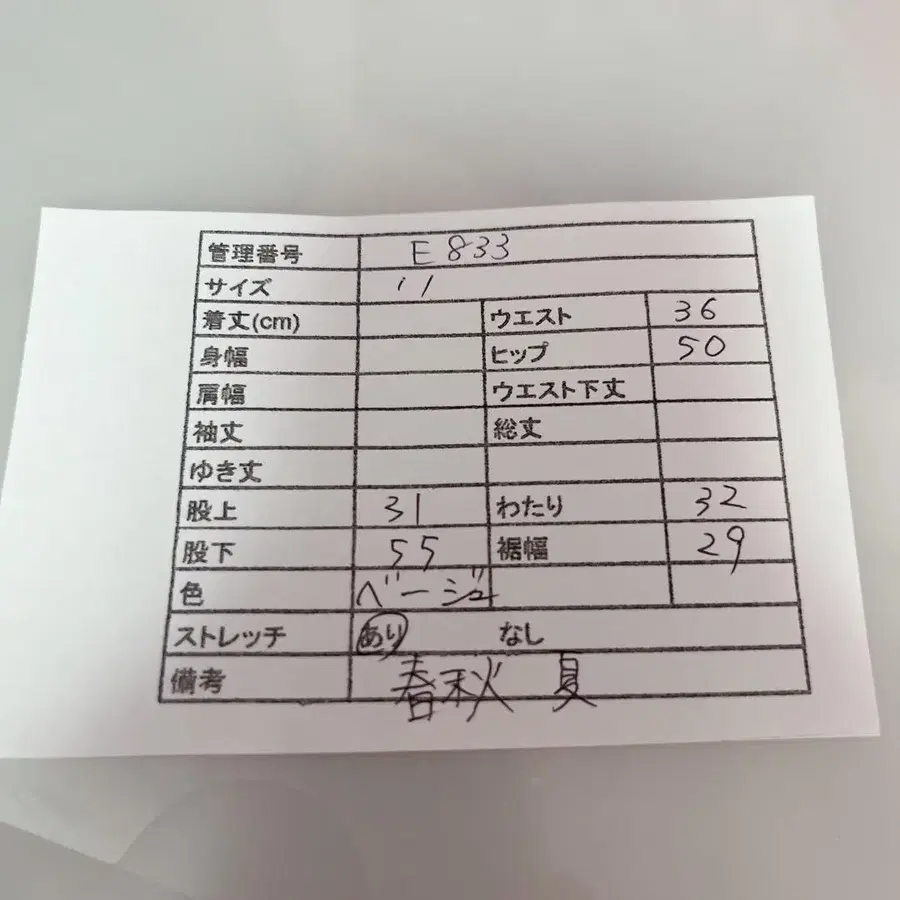 管理番号 E833
サイズ 11
着丈(cm) ウエスト 36
身幅 ヒップ 50
肩幅 ウエスト下丈
袖丈 総丈
ゆき丈
股上 31 わたり 32
股下 55 裾幅 29
色 ベージュ
ストレッチ あり なし
備考 春秋 夏